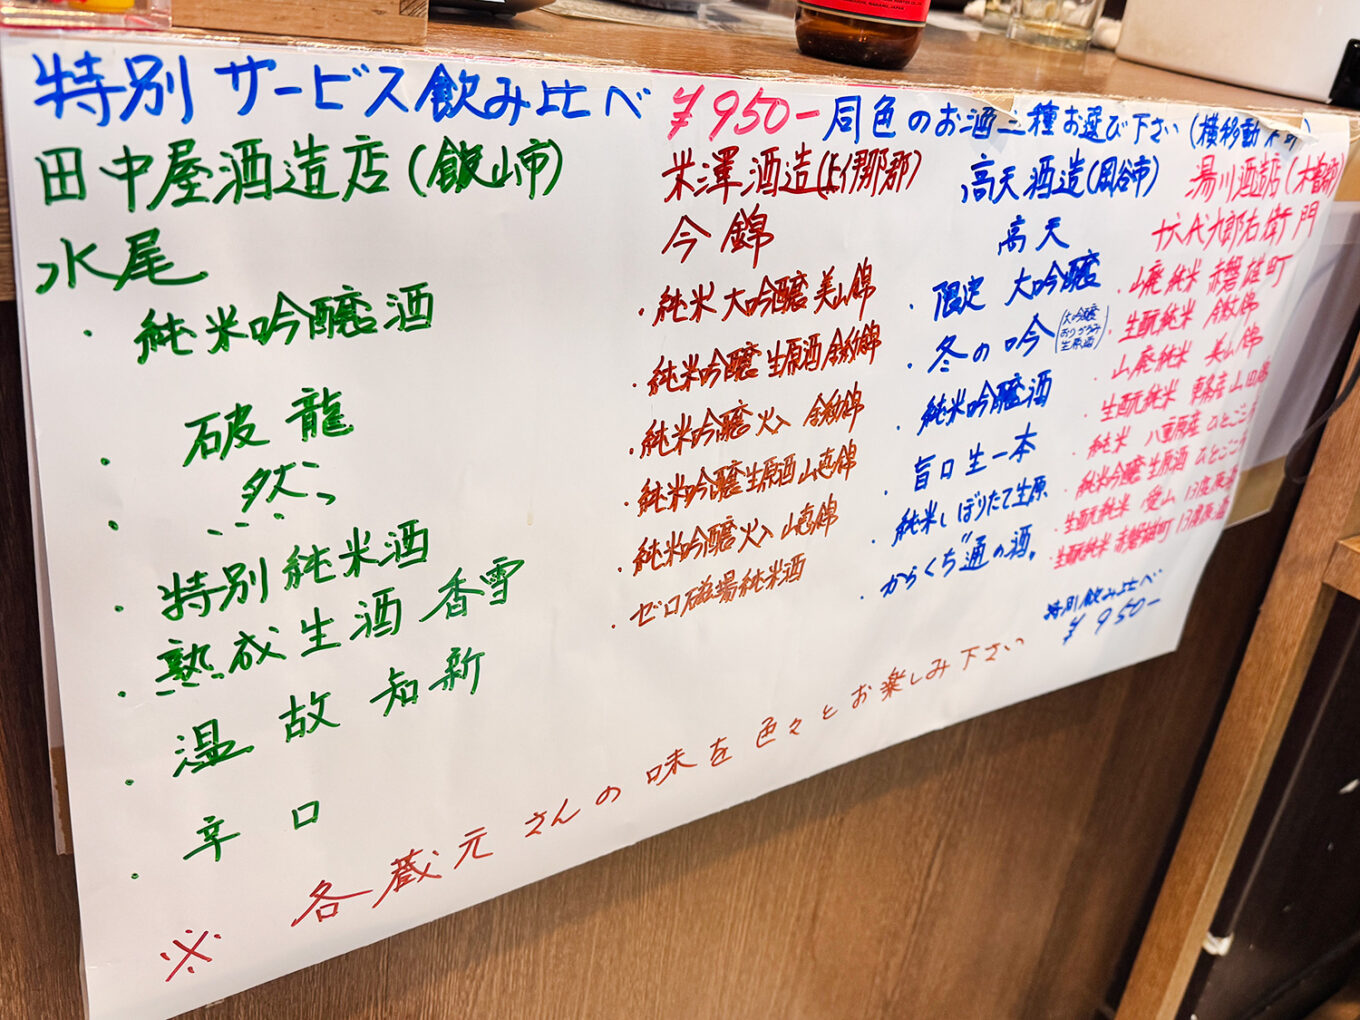 特別サービス飲み比べ ¥950- 同色のお酒三種お選び下さい(横移動不可)
田中屋酒造店(飯山市)
水尾
・純米吟醸酒
・破龍
・然
・特別純米酒
・熟成生酒 香雪
・温故知新
・辛口
米澤酒造(上伊那郡)
今錦
・純米大吟醸 美山錦
・純米吟醸 生原酒 金紋錦
・純米吟醸 火入 金紋錦
・純米吟醸 生原酒 山恵錦
・純米吟醸 火入 山恵錦
・ゼロ磁場純米酒
高天酒造(岡谷市)
高天
・限定 大吟醸
・冬の吟(大吟醸 おりがらみ 生原酒)
・純米吟醸酒
・旨口生一本
・純米しぼりたて生原、
・からくち"通の酒。
湯川酒造店(木曽郡)
十六代九郎右衛門
・山廃純米 赤磐雄町
・生酛純米 金紋錦
・山廃純米 美山錦
・生酛純米 東条産山田錦
・純米 八重原産 ひとごこち
・純米吟醸 生原酒 ひとごこち
・生酛純米 愛山 13度原酒
・生酛純米 赤磐雄町 13度原酒
特別飲み比べ
¥950-
※ 各蔵元さんの味を色々とお楽しみ下さい